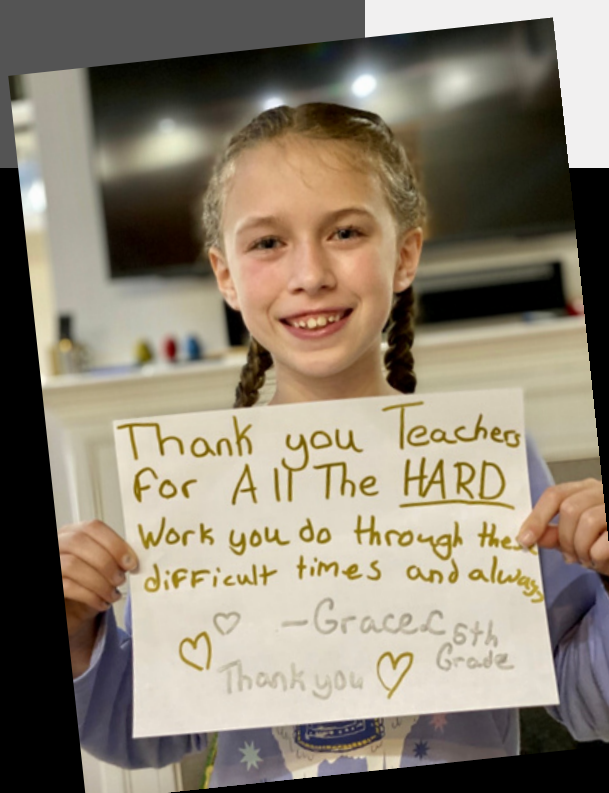 Thank you Teachers
For All The HARD
Work you do through these
difficult times and always
-Grace L 5th
Grade
Thank you